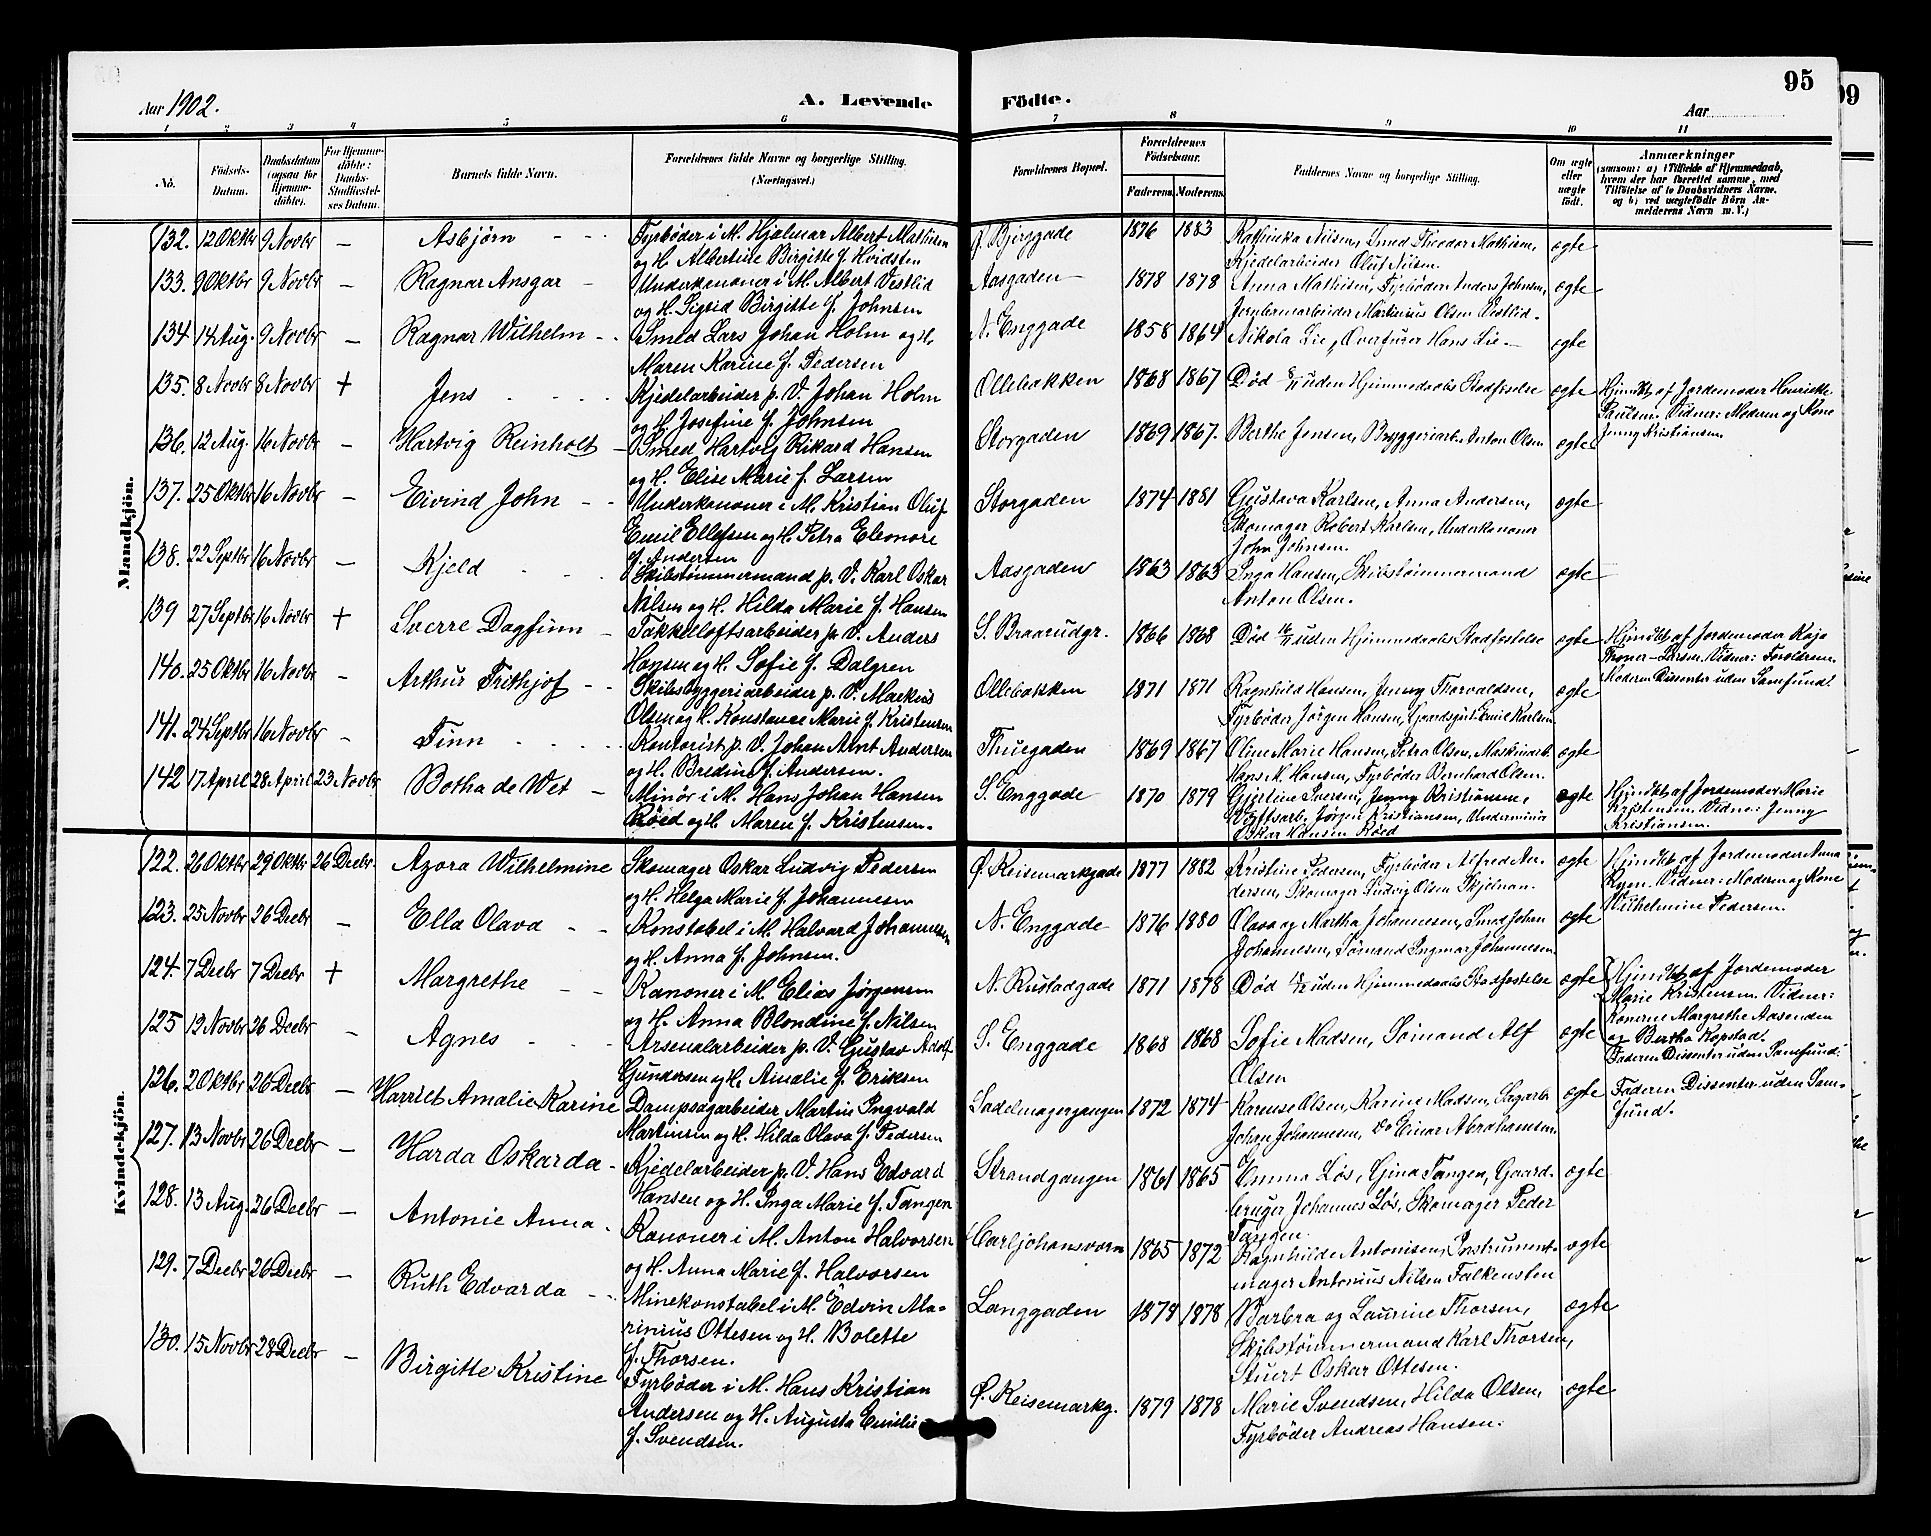 95
Aar 1902.
A. Levende
Födte.
Aar
1 2 3 4 5 6 7 8 9 10 11
No.
Födsels-Datum.
Daabsdatum (ogsaa for Hjemme-döbte).
For Hjemme-döbte: Daabs-Stadfæstel-ses Datum.
Barnets fulde Navn.
Forældrenes fulde Navne og borgerlige Stilling. (Næringsvei.)
Forældrenes Bopæl.
Forældrenes Födselsaar.
Faderens. Moderens.
Faddernes Navne og borgerlige Stilling.
Om ægte eller uægte født.
Anmærkninger (saasom: a) i Tilfælde af Hjemmedaab, hvem der har forrettet samme, med Tilföielse af to Daabsvidners Navne, og b) ved uægtefödte Börn Anmelderens Navn m. V.)
Mandkjön.
132. 12 Oktbr 9 Novbr – Asbjörn Fyrböder i M. Hjalmar Albert Mathisen og H. Albertine Birgitte f. Hvidsten Ø. Bjerggade 1876 1883 Kathinka Nilsen, Smed Theodor Mathisen, Kjedelarbeider Oluf Nilsen. ægte
133. 9 Oktbr 9 Novbr – Ragnar Ansgar Underkanoner i M. Albert Vestlid og H. Sigrid Birgitte f. Johnsen Aasgaden 1878 1878 Anna Mathisen, Fyrböder Anders Johnsen, Jernbanearbeider Martinius Olsen Vestlid. ægte
134 14 Aug. 9 Novbr – Ragnar Wilhelm Smed Lars Johan Holm og H. Maren Karine f. Pedersen N. Enggade 1858 1864 Nikola Lie, Overfurer Hans Lie ægte
135. 8 Novbr 8 Novbr + Jens Kjedelarbeider p. V. Johan Holm og H. Josefine f. Johnsen Ollebakken 1868 1867 Död 8/11 uden Hjemmedaabs Stadfæstelse ægte Hjmdbt af Jordemoder Henrikke Paulsen. Vidner: Moderen og Kone Jenny Kristiansen
136. 12 Aug. 16 Novbr – Hartvig Reinholt Smed Hartvig Rikard Hansen og H. Elise Marie f. Larsen Storgaden 1869 1867. Berthe Jensen, Bryggeriarb. Anton Olsen ægte
137. 25 Oktbr 16 Novbr – Eivind John Underkanoner i M. Kristian Oluf Emil Ellefsen og H. Petra Eleonore f. Andersen Storgaden 1874 1881 Gustava Karlsen, Anna Andersen, Skomager Robert Karlsen, Underkanoner John Johnsen. ægte
138. 22 Septbr 16 Novbr – Kjeld Skibstömmermand p. V. Karl Oskar Nilsen og H. Hilda Marie f. Hansen Aasgaden 1863 1863 Inga Hansen, Skibstömmermand Anton Olsen. ægte
139 27 Septbr 16 Novbr + Sverre Dagfinn Takkelloftsarbeider p. V. Anders Hansen og H. Sofie f. Dalgren S. Braarudgr. 1866 1868 Död 16/11 uden Hjemmedaabs Stadfæstelse ægte Hjmdbt af Jordemoder Kaja Throner-Larsen. Vidner: Forældrene. Moderen Dissenter uden Samfund.
140. 25 Oktbr 16 Novbr – Arthur Frithjof Skibsbyggeriarbeider p. V. Markus Olsen og H. Konstance Marie f. Kristensen Ollebakken 1871 1871 Ragnhild Hansen, Jenny Thorvaldsen, Fyrböder Jörgen Hansen, Gaardsgut Emil Karlsen ægte
141. 24 Septbr 16 Novbr – Finn Kontorist p. V. Johan Arnt Andersen og H. Bredine f. Andersen. Thuegaden 1869 1867 Oline Marie Hansen, Petra Olsen, Maskinarb. Hans K. Hansen, Fyrböder Bernhard Olsen. ægte
142 17 April 28 April 23 Novbr Botha de Wet Minör i M. Hans Johan Hansen Röed og H. Maren f. Kristensen. S. Enggade 1870 1879 Gjertine Iversen, Jenny Kristiansen, Jörgen Kristiansen, Underminör Oskar Hansen Röed ægte Hjmdbt af Jordemoder Marie Kristensen. Vidne: Jenny Kristiansen.
Kvindekjön.
122. 26 Oktbr 29 Oktbr 26 Decbr. Azora Wilhelmine Skomager Oskar Ludvig Pedersen og H. Helga Marie f. Johannesen Ø. Keisemarkgade 1877 1882 Kristine Pedersen, Fyrböder Alfred Andersen, Skomager Ludvig Olsen Skjölman. ægte Hjmdbt af Jordemoder Anna Ryen. Vidner: Moderen og Kone Wilhelmine Pedersen.
123. 25 Novbr 26 Decbr – Ella Olava Konstabel i M. Halvard Johannesen og H. Anna f. Johnsen. N. Enggade 1876 1880 Olava og Martha Johannesen, Smed Johan Johannesen, Sömand Ingmar Johannesen ægte
124. 7 Decbr 7 Decbr + Margrethe Kanoner i M. Elias Jörgensen og H. Anna Blondine f. Nilsen N. Rustadgade 1871 1878 Död uden Hjemmedaabs Stadfæstelse ægte Hjmdbt af Jordemoder Marie Kristensen. Vidner: Konerne Margrethe Aasenden og Bertha Kopstad. Faderen Dissenter uden Samfund.
125 12 Novbr 26 Decbr – Agnes Arsenalarbeider p. V. Gustav Adolf Gundersen og H. Amalie f. Eriksen S. Enggade 1868 1868 Sofie Madsen, Sömand Alf Olsen ægte
126. 2 Oktbr 26 Decbr – Harriet Amalie Karine Dampsagarbeider Martin Ingvald Martinsen og H. Hilda Olava f. Pedersen Sadelmagergangen 1872 1874 Karense Olsen, Karine Madsen, Sagarb. Johan Johannesen, Do Einar Abrahamsen ægte Faderen Dissenter uden Samfund.
127. 13 Novbr 26 Decbr – Harda Oskarda Kjedelarbeider p. V. Hans Edvard Hansen og H. Inga Marie f. Tangen Strandgangen 1861 1865 Emma Lös, Gina Tangen, Gaardbruger Johannes Lös, Skomager Peder Tangen. ægte
128. 13 Aug. 26 Decbr – Antonie Anna Kanoner i M. Anton Halvorsen og H. Anna Marie f. Halvorsen Carljohansværn 1865 1872 Ragnhilde Antonisen, Instrumentmager Antonius Nilsen Falkensten ægte
129. 7 Decbr 26 Decbr – Ruth Edvarda Minekonstabel i M. Edvin Marinius Ottesen og H. Bolette f. Thorsen. Langgaden 1878 1878 Barbra og Laurine Thorsen, Skibstömmermand Karl Thorsen, Stuert Oskar Ottesen. ægte
130. 15 Novbr 28 Decbr – Birgitte Kristine Fyrböder i M. Hans Kristian Andersen og H. Augusta Emilie f. Svendsen. Ø. Keisemarkg. 1879 1878 Marie Svendsen, Hilda Olsen, Fyrböder Andreas Hansen. ægte